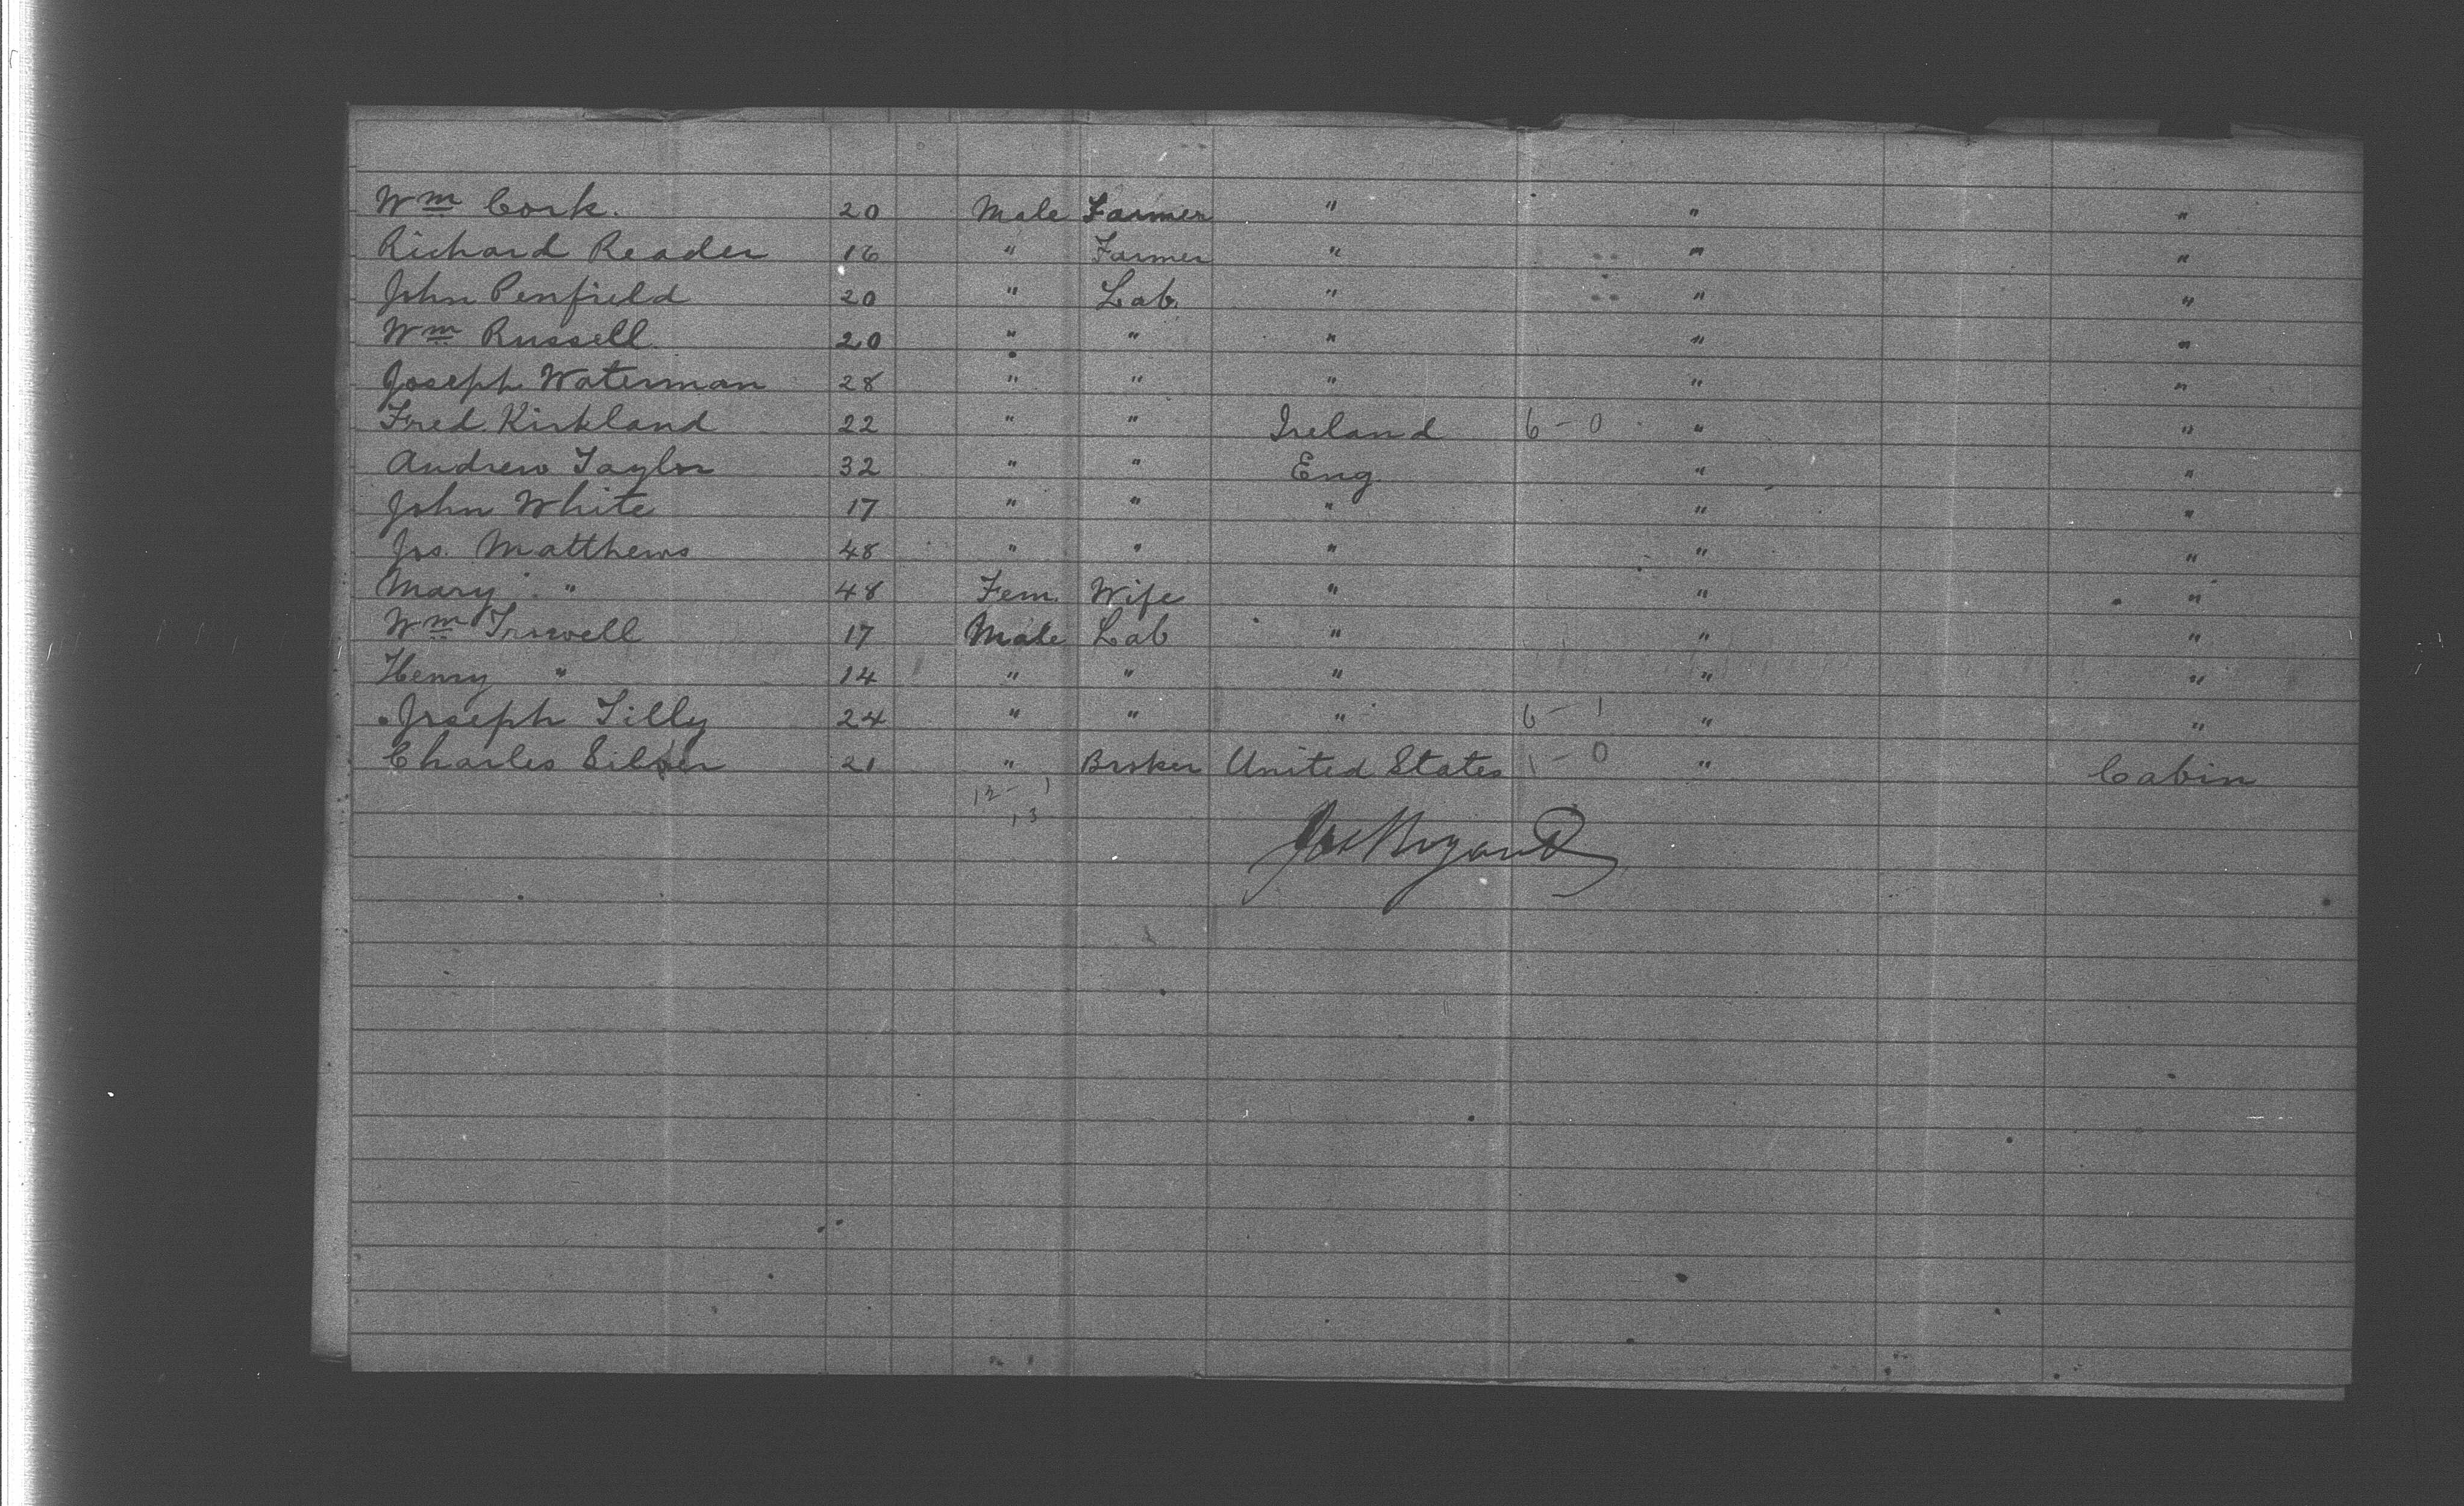 Wm Cork. 20 Male Farmer " " "
Richard Reader 16 " Farmer " " "
John Penfield 20 " Lab. " " "
Wm Russell 20 " " " " "
Joseph Waterman 28 " " " " "
Fred. Kirkland 22 " " Ireland 6 - 0 " "
Andrew Taylor 32 " " Eng. " "
John White 17 " " " " "
Jos. Matthews 48 " " " " "
Mary " 48 Fem. Wife " " "
Wm 17 Male Lab " " "
Henry " 14 " " " " "
Joseph Tilly 24 " " " 6 - 1 " "
Charles Silver 21 " Broker United States 1 - 0 " Cabin
12 - 1
13